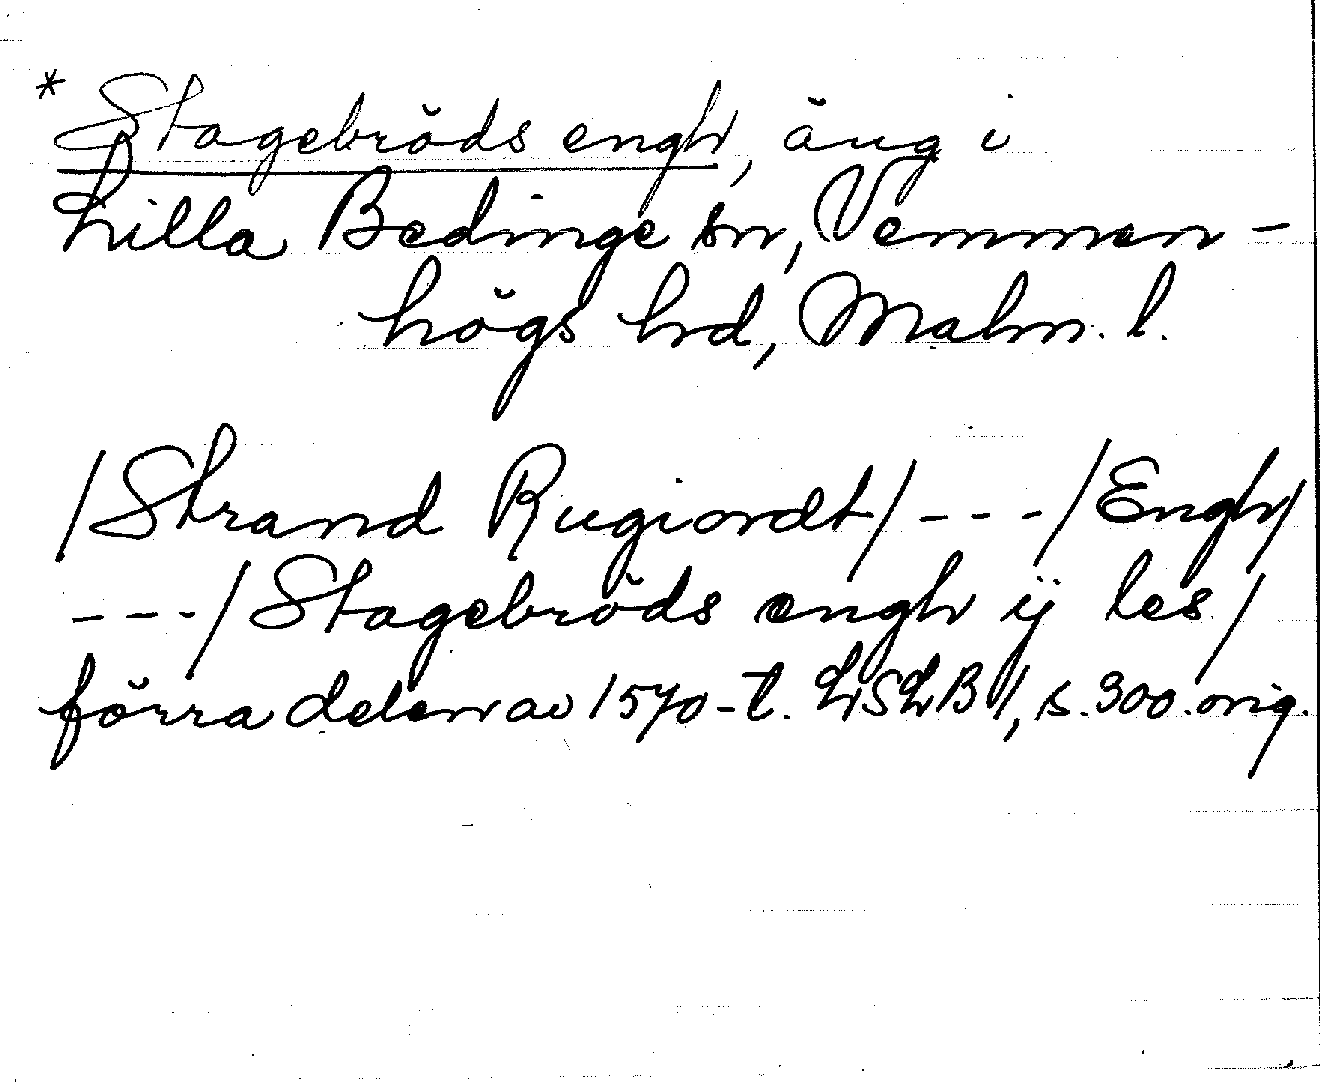 * Stagebröds engh, äng i
Lilla Bedinge sn, Vemmen-
högs hrd, Malm. l.
/Strand Rugiordt/---/Engh/
---/Stagebröds engh ij les/
förra delen av 1570-t. LSLB 1, s. 300. orig.